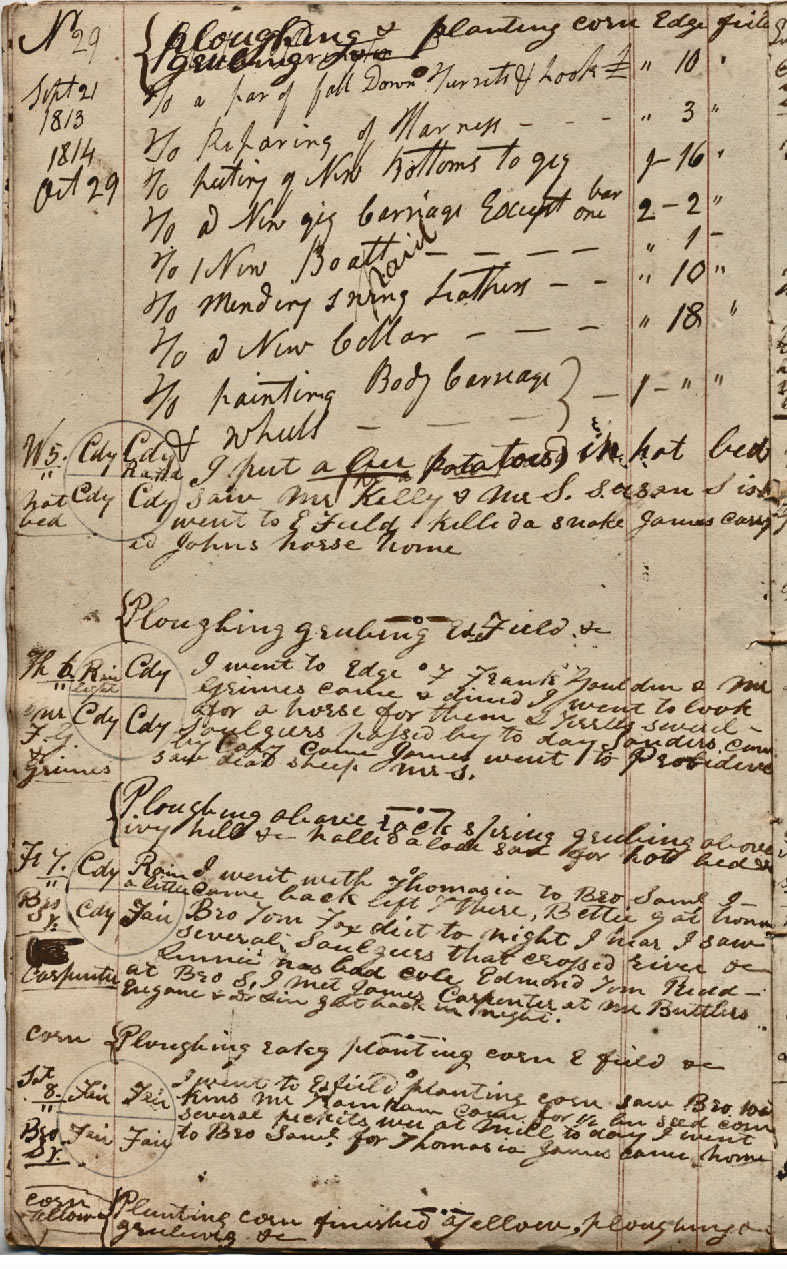 No 29
{ Ploughing & planting corn Edge field
grubing
Sept 21 To a par of fall Down Turrets & hook " 10 "
1813
To Repairing of Harness - - - " 3 "
1814
Oct 29 To puting of New bottoms to gig 1-16 "
To a New gig Carriage Except bar one 2-2 "
To 1 New Boalt - - - - " 1 -
paid
To Mending Spring Leathers - - " 10 "
To a New Collar - - - " 18 "
To painting Body Carriage } - 1 - " "
& wheels - - -
W 5. Cdy Cdy I put a few potatoes in hot bed
hot bed Cdy Cdy saw Mr Kelly & Mr S. Susan S is
went to E Field killed a snake James carry
ed Johns horse home
{ Ploughing grubing Ed Field &c
Th 6 Rain light Cdy I went to Edge F Frank & Mr
Grimes came & dined I went to look
Cdy Cdy for a horse for them & several
F. G. Soulgiers passed by to day Sanders came
& Grimes by Cary came James went to Providence
saw dead sheep Mr S.
{ Ploughing above rock spring grubing above
ivy hill &c halled a load for hot bed &
Fr 7. Cdy Rain a little I went with Thomasia to Bro Saml I
came back left T there, Bettie got home
Bro Sl. Cdy Fair Bro Tom Fox dict to night I hear I saw
several Soulgiers that crossed river &c
Linnie has bad cole Edmond Tom Redd
Carpenter at Bro S, I met James Carpenter at Mr Buttlers
Eugane & got back in night.
corn { Ploughing rakg planting corn E field &c
Sat 8. Fair Fair I went to E field planting corn saw Bro
kins Mr Farnham came for ½ bu seed corn
several pickits wer at Mill to day I went
Bro Sl. Fair Fair to Bro Saml for Thomasia James came home
corn yellow { Planting corn finished yellow, ploughing &
grubing &c